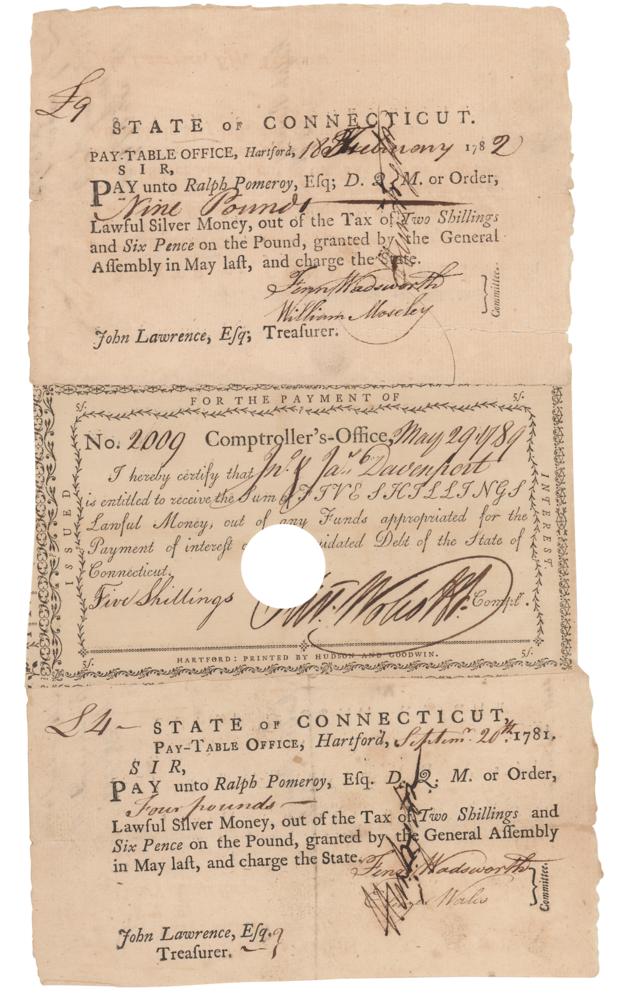 £9
STATE OF CONNECTICUT.
PAY-TABLE OFFICE, Hartford, 18 February 1782
SIR,
PAY unto Ralph Pomeroy, Esq; D. Q. M. or Order,
Nine Pounds
Lawful Silver Money, out of the Tax of Two Shillings
and Six Pence on the Pound, granted by the General
Aſſembly in May laſt, and charge the State.
Fenn Wadsworth
William Moseley
Committee.
John Lawrence, Eſq; Treaſurer.
FOR THE PAYMENT OF
5ſ. 5ſ.
No. 2009 Comptroller's-Office, May 29 1789
I hereby certify that Jno. & Jas. Davenport
is entitled to receive the Sum of FIVE SHILLINGS
Lawful Money, out of any Funds appropriated for the
Payment of interest idated Debt of the State of
Connecticut.
Five Shillings Compt.
ISSUED
INTEREST.
5ſ. 5ſ.
HARTFORD: PRINTED BY HUDSON AND GOODWIN.
£4
STATE OF CONNECTICUT,
PAY-TABLE OFFICE, Hartford, Septemr. 20th. 1781.
SIR,
PAY unto Ralph Pomeroy, Esq. D. Q. M. or Order,
Four pounds
Lawful Silver Money, out of the Tax of Two Shillings and
Six Pence on the Pound, granted by the General Aſſembly
in May laſt, and charge the State.
Fenn Wadsworth
Wales
Committee.
John Lawrence, Eſq.
Treaſurer.